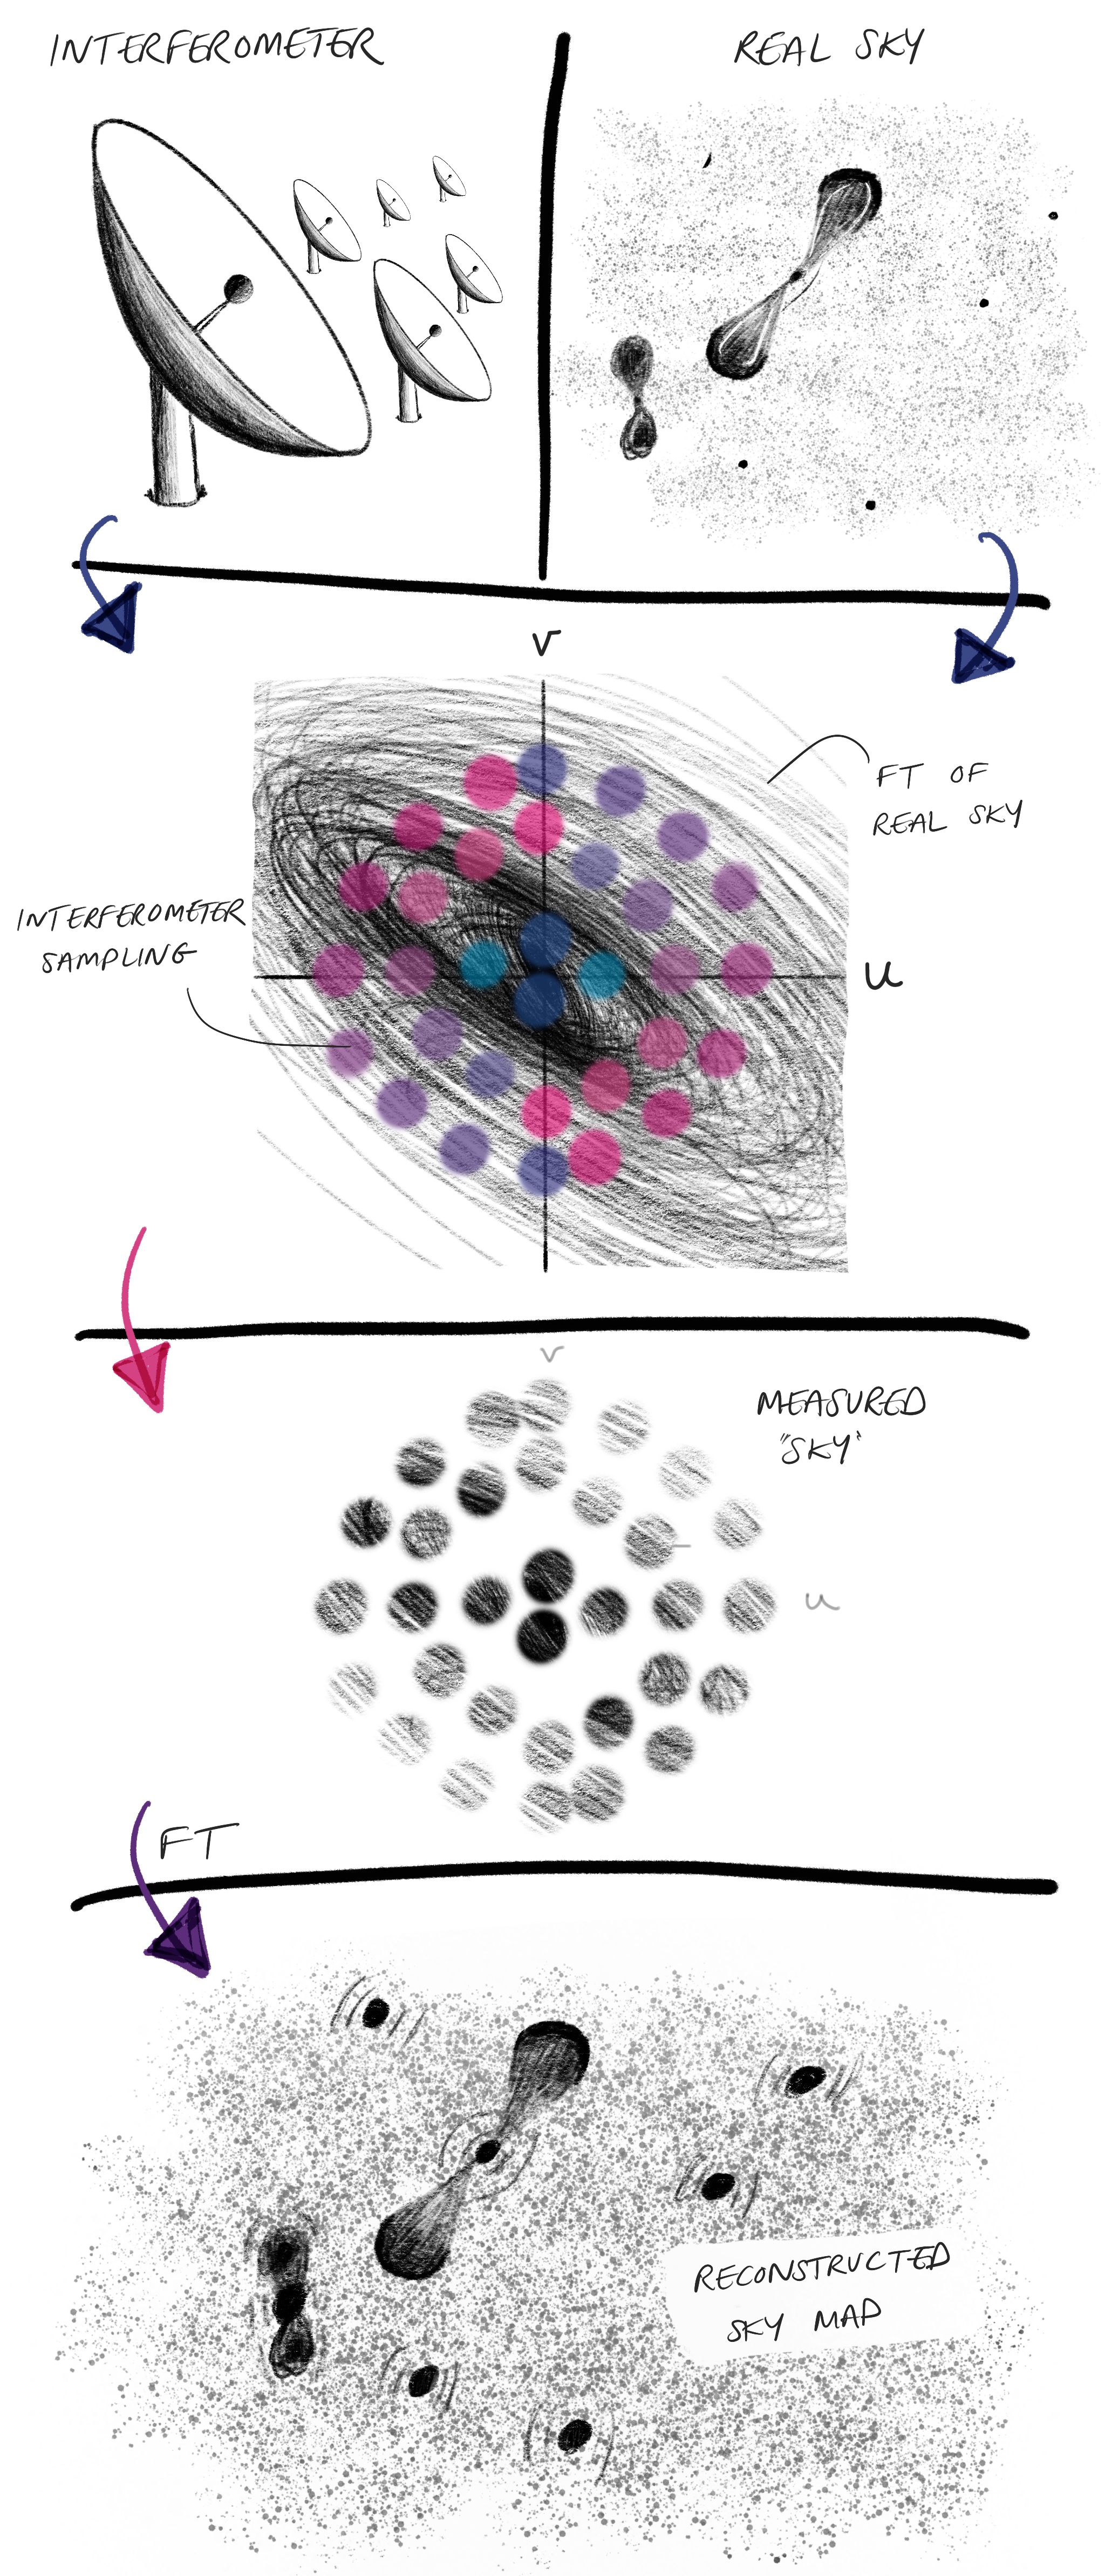 INTERFEROMETER
REAL SKY
V
FT OF
REAL SKY
INTERFEROMETER
SAMPLING
U
V
MEASURED
"SKY"
U
FT
RECONSTRUCTED
SKY MAP